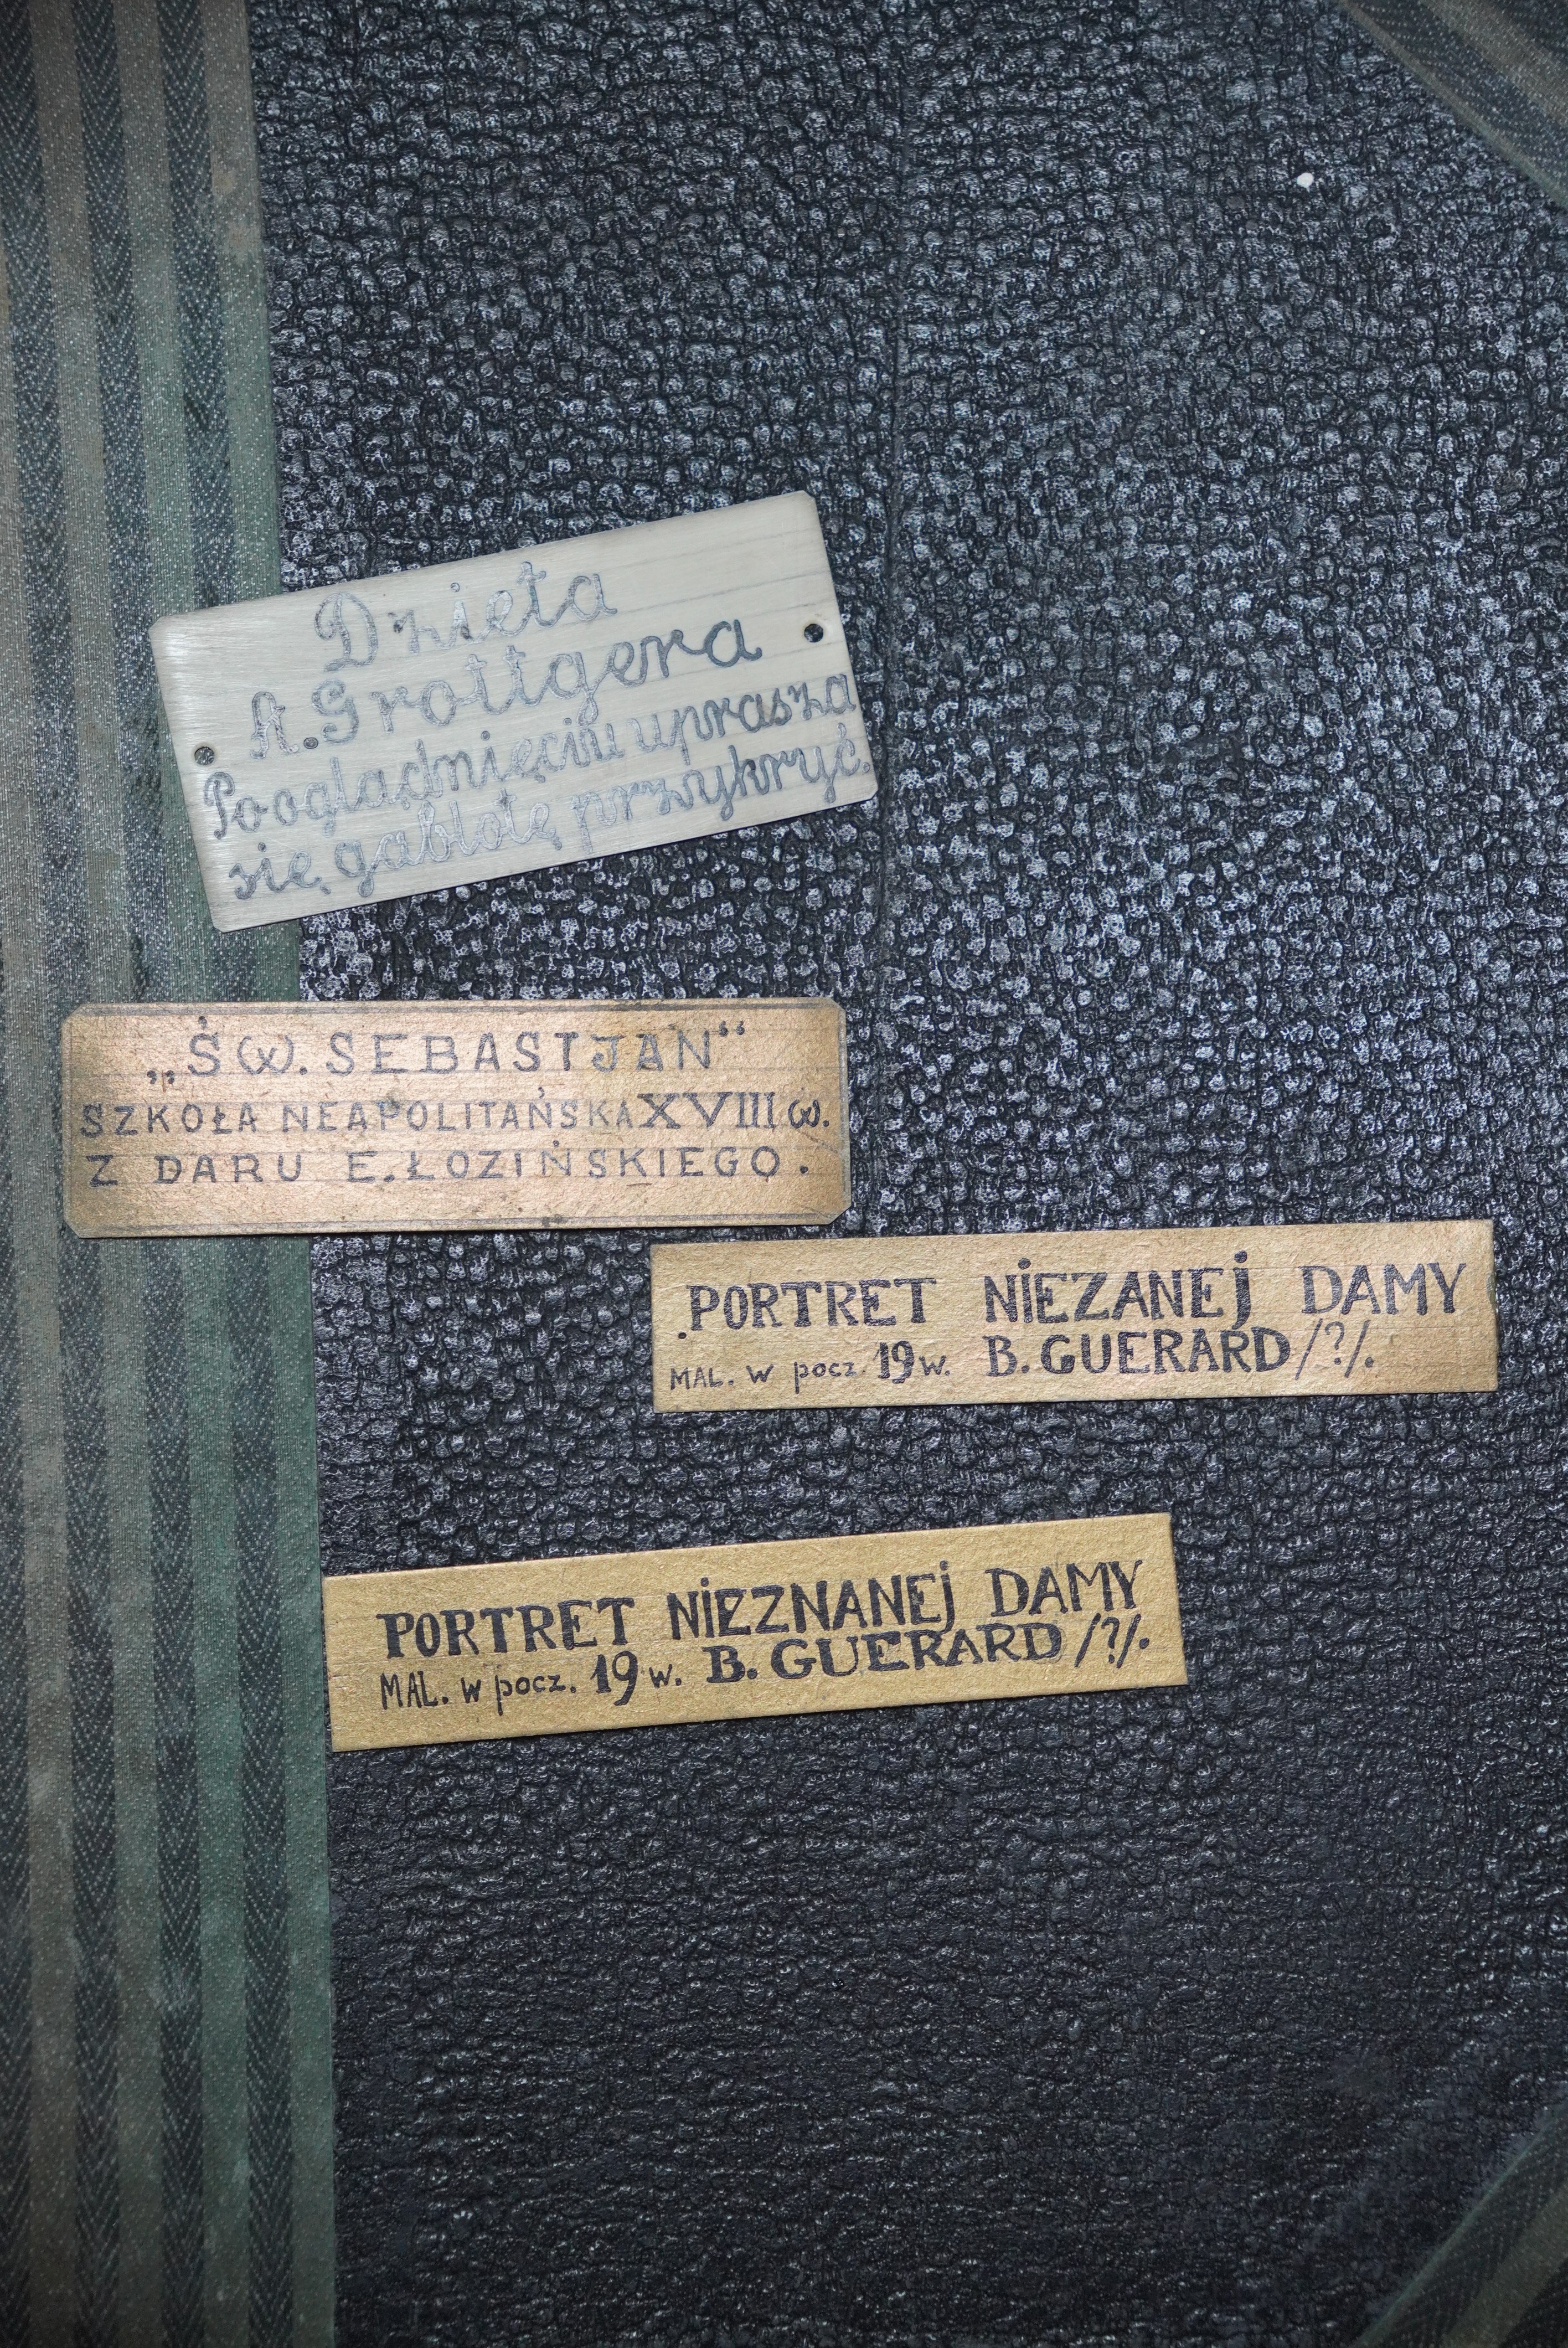 Dzieła
A. Grottgera
Po oglądnięciu uprasza
się gablotę przykryć.
„ŚW. SEBASTJAN“
SZKOŁA NEAPOLITAŃSKA XVIII w.
Z DARU E. ŁOZIŃSKIEGO.
PORTRET NIEZANEJ DAMY
MAL. w pocz. 19 w. B. GUERARD /?/.
PORTRET NIEZNANEJ DAMY
MAL. w pocz. 19 w. B. GUERARD /?/.